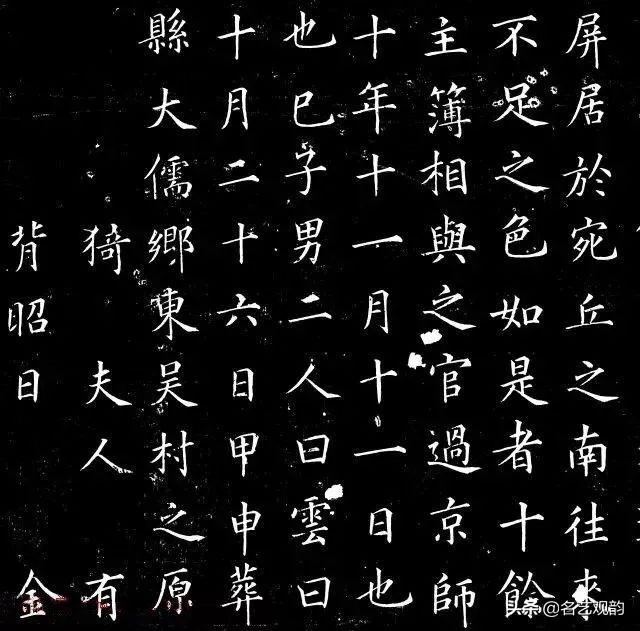 屏居於宛丘之南往來
不足之色如是者十餘
主簿相與之官過京師
十年十一月十一日也
也巳子男二人曰雲曰
十月二十六日甲申葬
縣大儒鄉東吴村之原
猗 夫人 有
背昭日 金
头条@名艺观韵